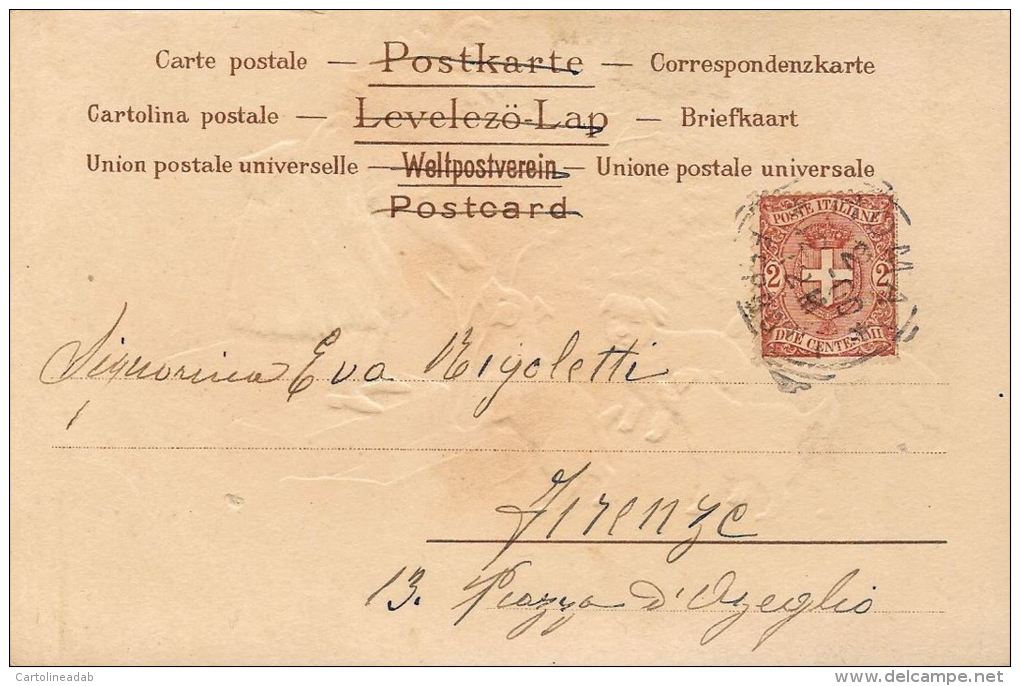 Carte postale — Postkarte — Correspondenzkarte
Cartolina postale — Levelezö-Lap — Briefkaart
Union postale universelle — Weltpostverein — Unione postale universale
Postcard
POSTE ITALIANE
2 2
DUE CENTESIMI
Signorina Eva Rigoletti
Firenze
13. Piazza d'Azeglio
Cartolineadab
delcampe.net